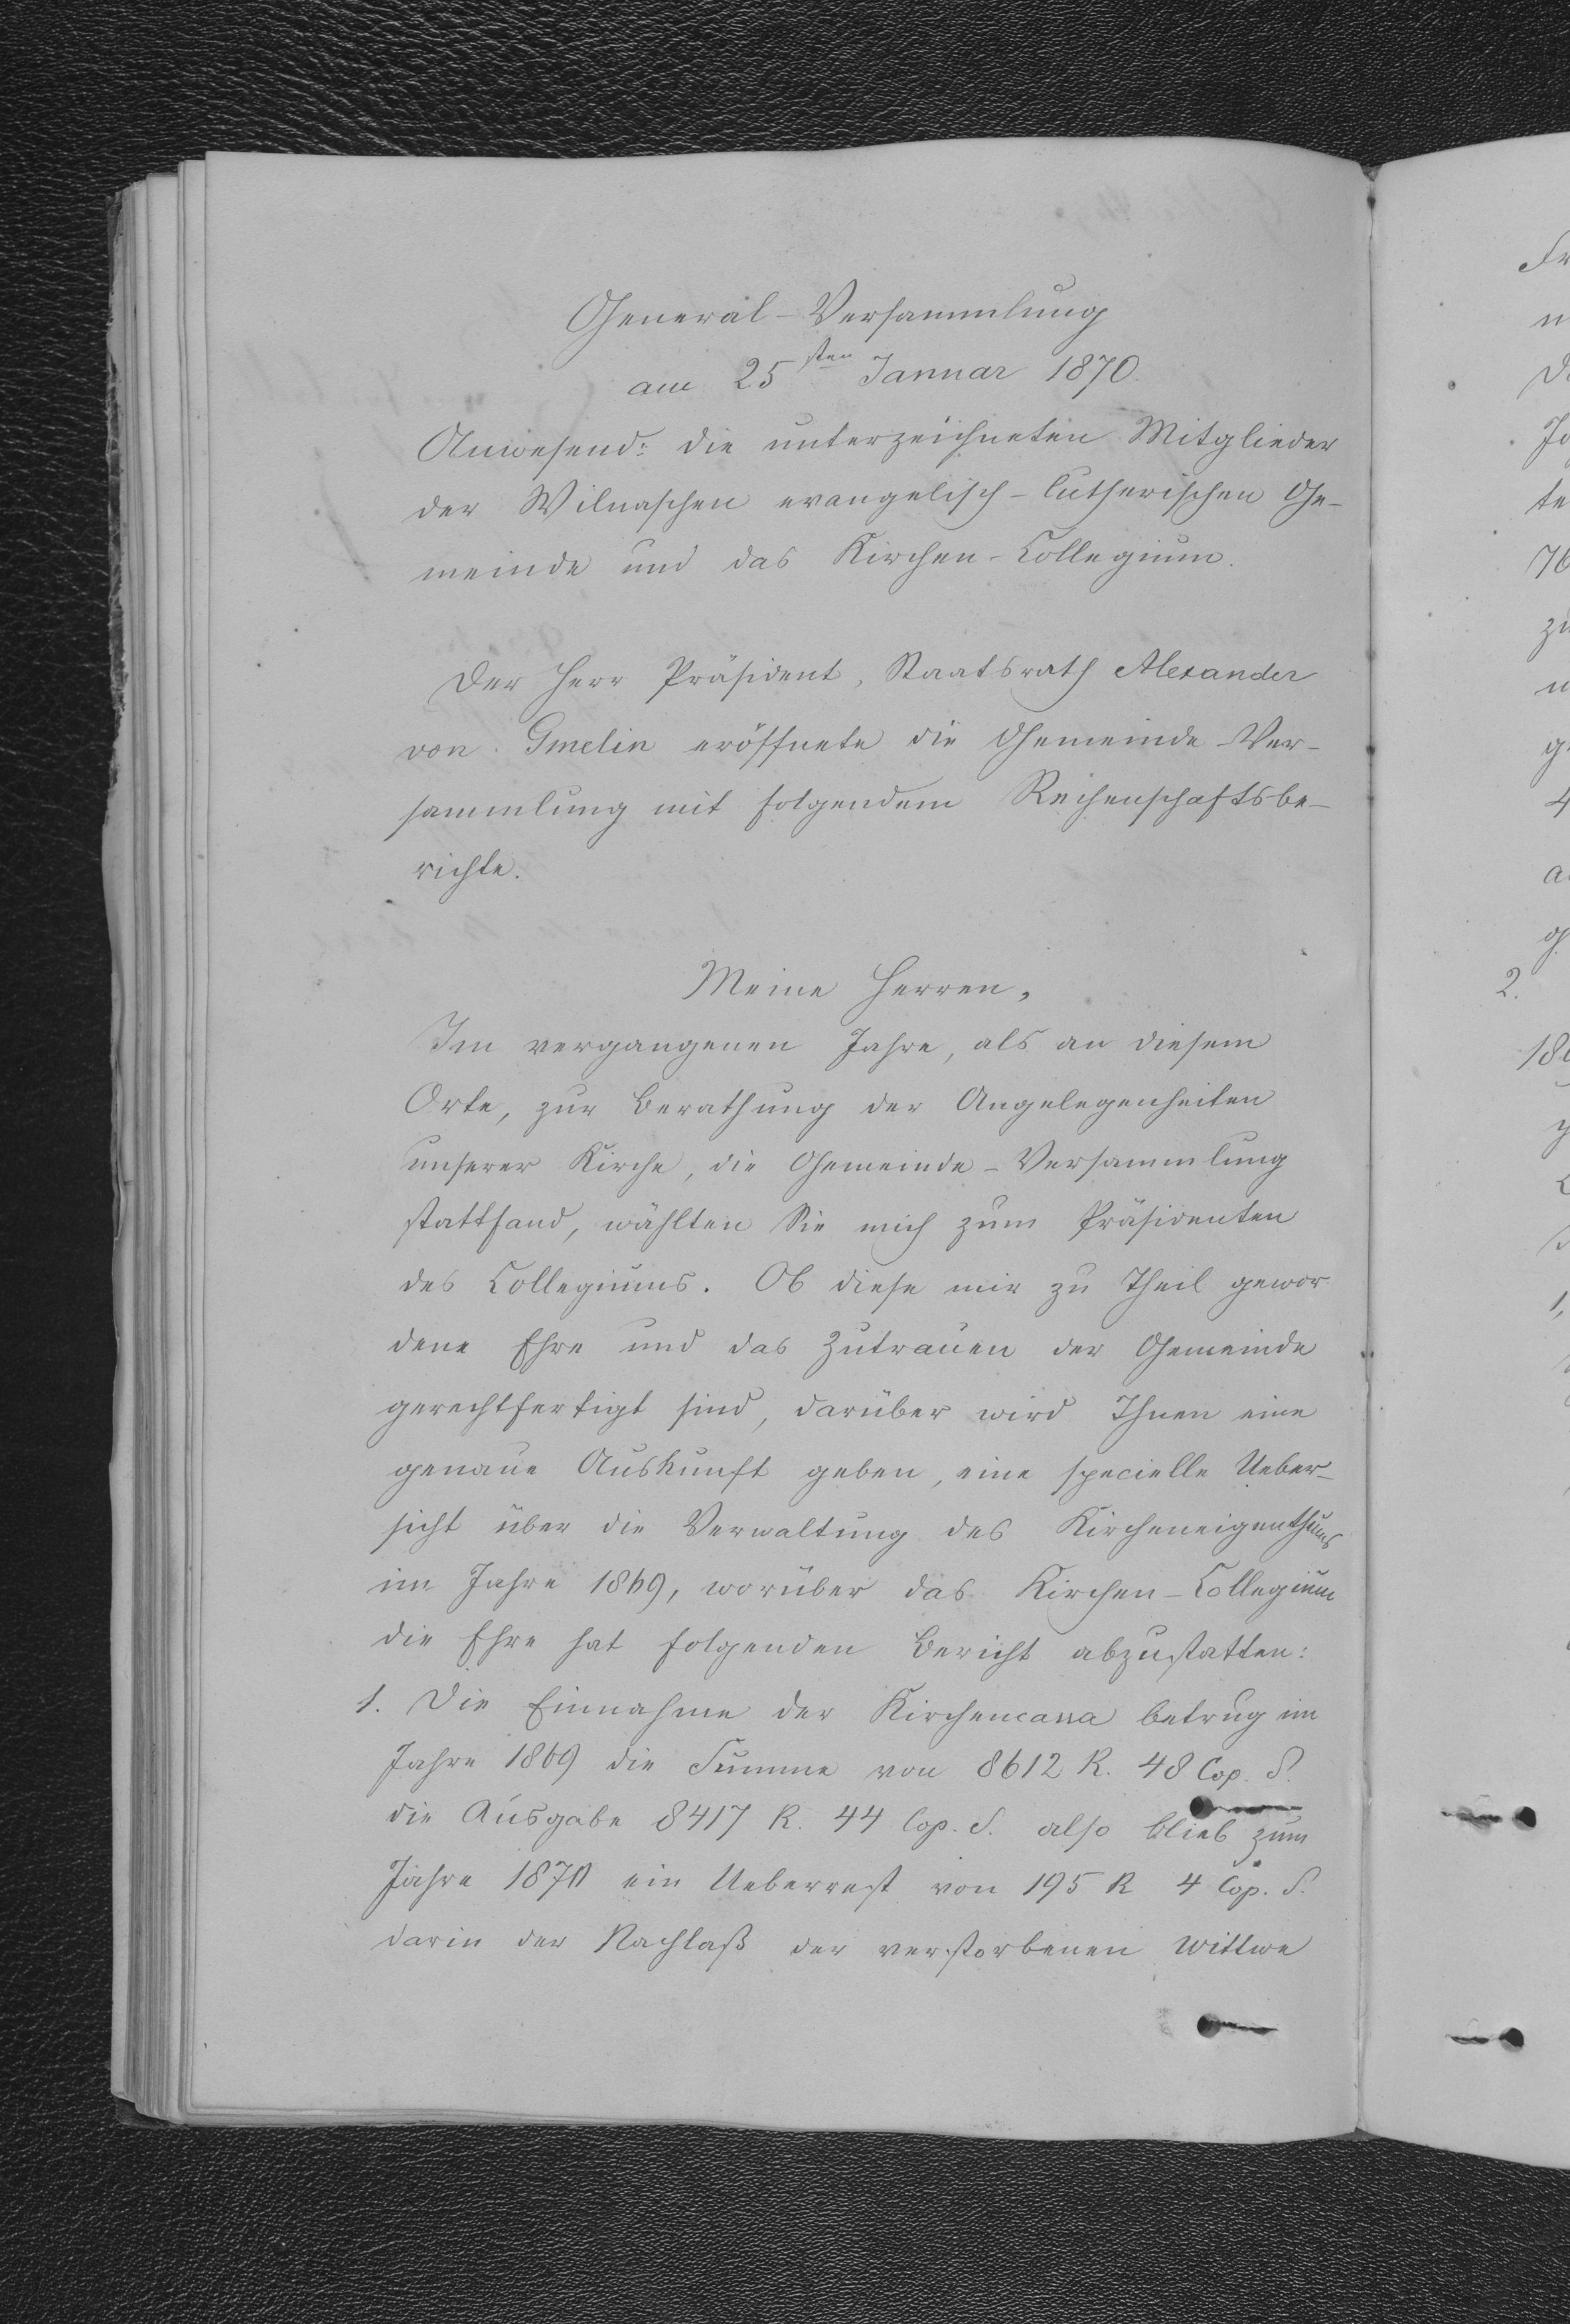 General-Versammlung
am 25sten Januar 1870.
Anwesend: die unterzeichneten Mitglieder
der Wilnaschen evangelisch-lutherischen Ge-
meinde und das Kirchen-Collegium.
Der Herr Präsident, Staatsrath Alexander
von Gmelin eröffnete die Gemeinde-Ver-
sammlung mit folgendem Rechenschaftsbe-
richte.
Meine Herren,
Im vergangenen Jahre, als an diesem
Orte, zur Berathung der Angelegenheiten
unserer Kirche, die Gemeinde-Versammlung
stattfand, wählten Sie mich zum Präsidenten
des Collegiums. Ob diese mir zu Theil gewor
dene Ehre und das Zutrauen der Gemeinde
gerechtfertigt sind, darüber wird Ihnen eine
genaue Auskunft geben, eine specielle Ueber-
sicht über die Verwaltung des Kircheneigenthums
im Jahre 1869, worüber das Kirchen-Collegium
die Ehre hat folgenden Bericht abzustatten:
1. Die Einnahme der Kirchencassa betrug im
Jahre 1869 die Summe von 8612 R. 48 Cop. S.
die Ausgabe 8417 R. 44 Cop. S. also blieb zum
Jahre 1870 ein Ueberrest von 195 R 4 Cop. S.
darin der Nachlaß der verstorbenen Wittwe
2.